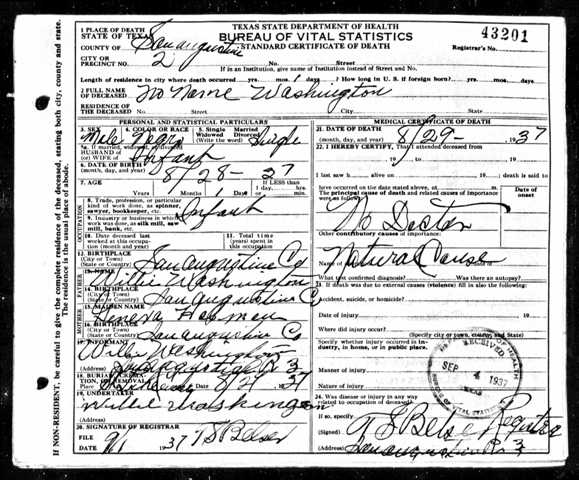 TEXAS STATE DEPARTMENT OF HEALTH
BUREAU OF VITAL STATISTICS
STANDARD CERTIFICATE OF DEATH
43201
Registrar's No.
1 PLACE OF DEATH
STATE OF TEXAS
COUNTY OF San augustine
CITY OR PRECINCT NO. 2 No. Street
If in an Institution, give Name of Institution instead of Street and No.
Length of residence in city where death occurred yrs. mos. 1 days How long in U. S. if foreign born? yrs. mos. days
2 FULL NAME OF DECEASED No Name Washington
RESIDENCE OF THE DECEASED No. Street City State
PERSONAL AND STATISTICAL PARTICULARS
3. SEX 4. COLOR OR RACE 5. Single Married Widowed Divorced (Write the word)
Male Single
5a. If married, widowed, or divorced HUSBAND OF (or) WIFE OF Infant
6. DATE OF BIRTH (month, day, and year) 8/28-37
7. AGE Years Months 1 Days If LESS than 1 day, hrs. min.
OCCUPATION
8. Trade, profession, or particular kind of work done, as spinner, sawyer, bookkeeper, etc. Infant
9. Industry or business in which work was done, as silk mill, saw mill, bank, etc.
10. Date deceased last worked at this occupation (month and year)
11. Total time (years) spent in this occupation
12. BIRTHPLACE (City or Town) (State or Country) San augustine Co
FATHER
13. NAME Willie Washington
14. BIRTHPLACE (City or Town) (State or Country) San augustine C
MOTHER
15. MAIDEN NAME Geneva
16. BIRTHPLACE (City or Town) (State or Country) San augustine Co
17. INFORMANT Willie Washington
San augustine R 3
18. BURIAL, CREMATION, OR REMOVAL 8/29 37
19. UNDERTAKER Willie Washington
20. SIGNATURE OF REGISTRAR
FILE DATE 9/1 1937 T S Belser
MEDICAL CERTIFICATE OF DEATH
21. DATE OF DEATH (month, day, and year) 8/29- 1937
22. I HEREBY CERTIFY, That I attended deceased from
19 to 19
I last saw h alive on 19 death is said to
have occurred on the date stated above, at m.
The principal cause of death and related causes of importance were as follows: Date of onset
No Doctor
Other contributory causes of importance:
Natural Cause
Name of operation
What test confirmed diagnosis? Was there an autopsy?
23. If death was due to external causes (violence) fill in also the following:
Accident, suicide, or homicide?
Date of injury 19
Where did injury occur?
(Specify city or town, county, and state)
Specify whether injury occurred in industry, in home, or in public place.
Manner of injury
Nature of injury
24. Was disease or injury in any way related to occupation of deceased?
If so, specify
(Signed) T S Belser Registra
San augustine R 3
RECEIVED
SEP 4 1937
TEXAS
BUREAU OF VITAL STATISTICS
IF NON-RESIDENT, be careful to give the complete residence of the deceased, stating both city, county and state. The residence is the usual place of abode.